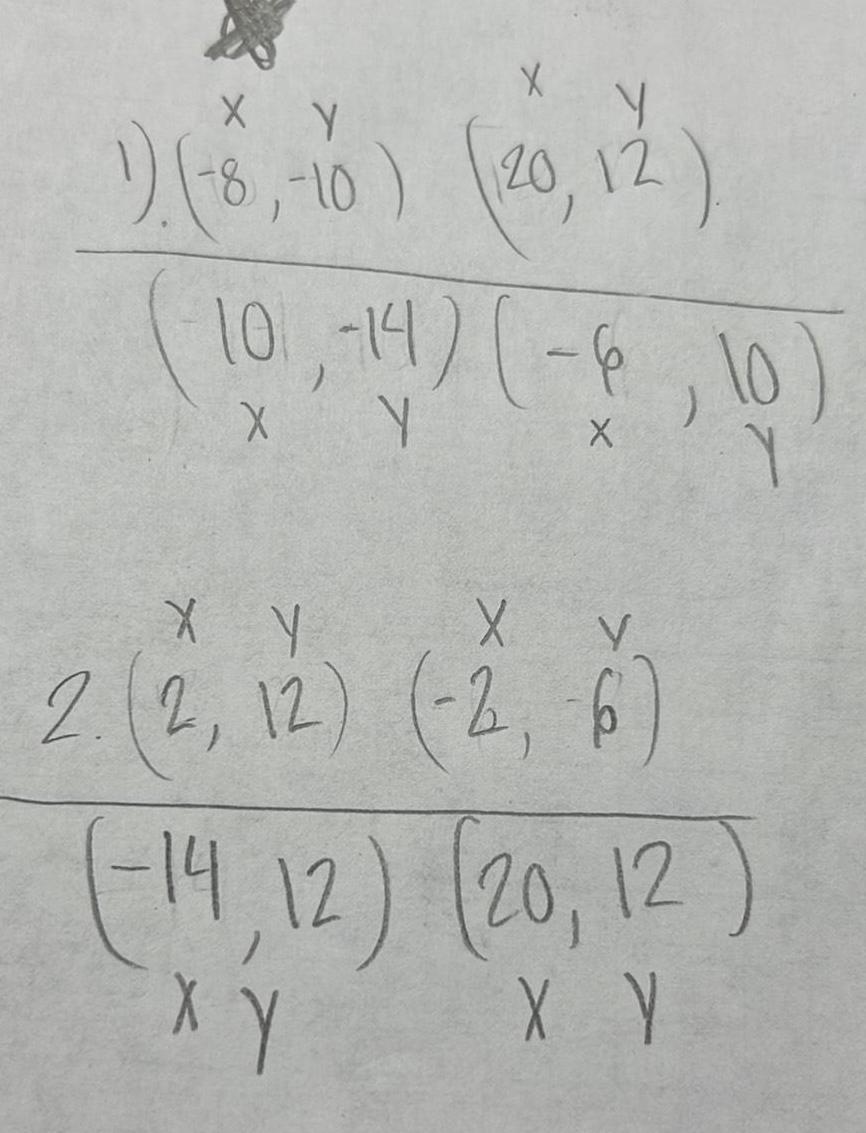 x y x y
1). (-8, -10) (20, 12).
(10, -14) (-6, 10)
x y x y
x y x y
2. (2, 12) (-2, -6)
(-14, 12) (20, 12)
x y x y